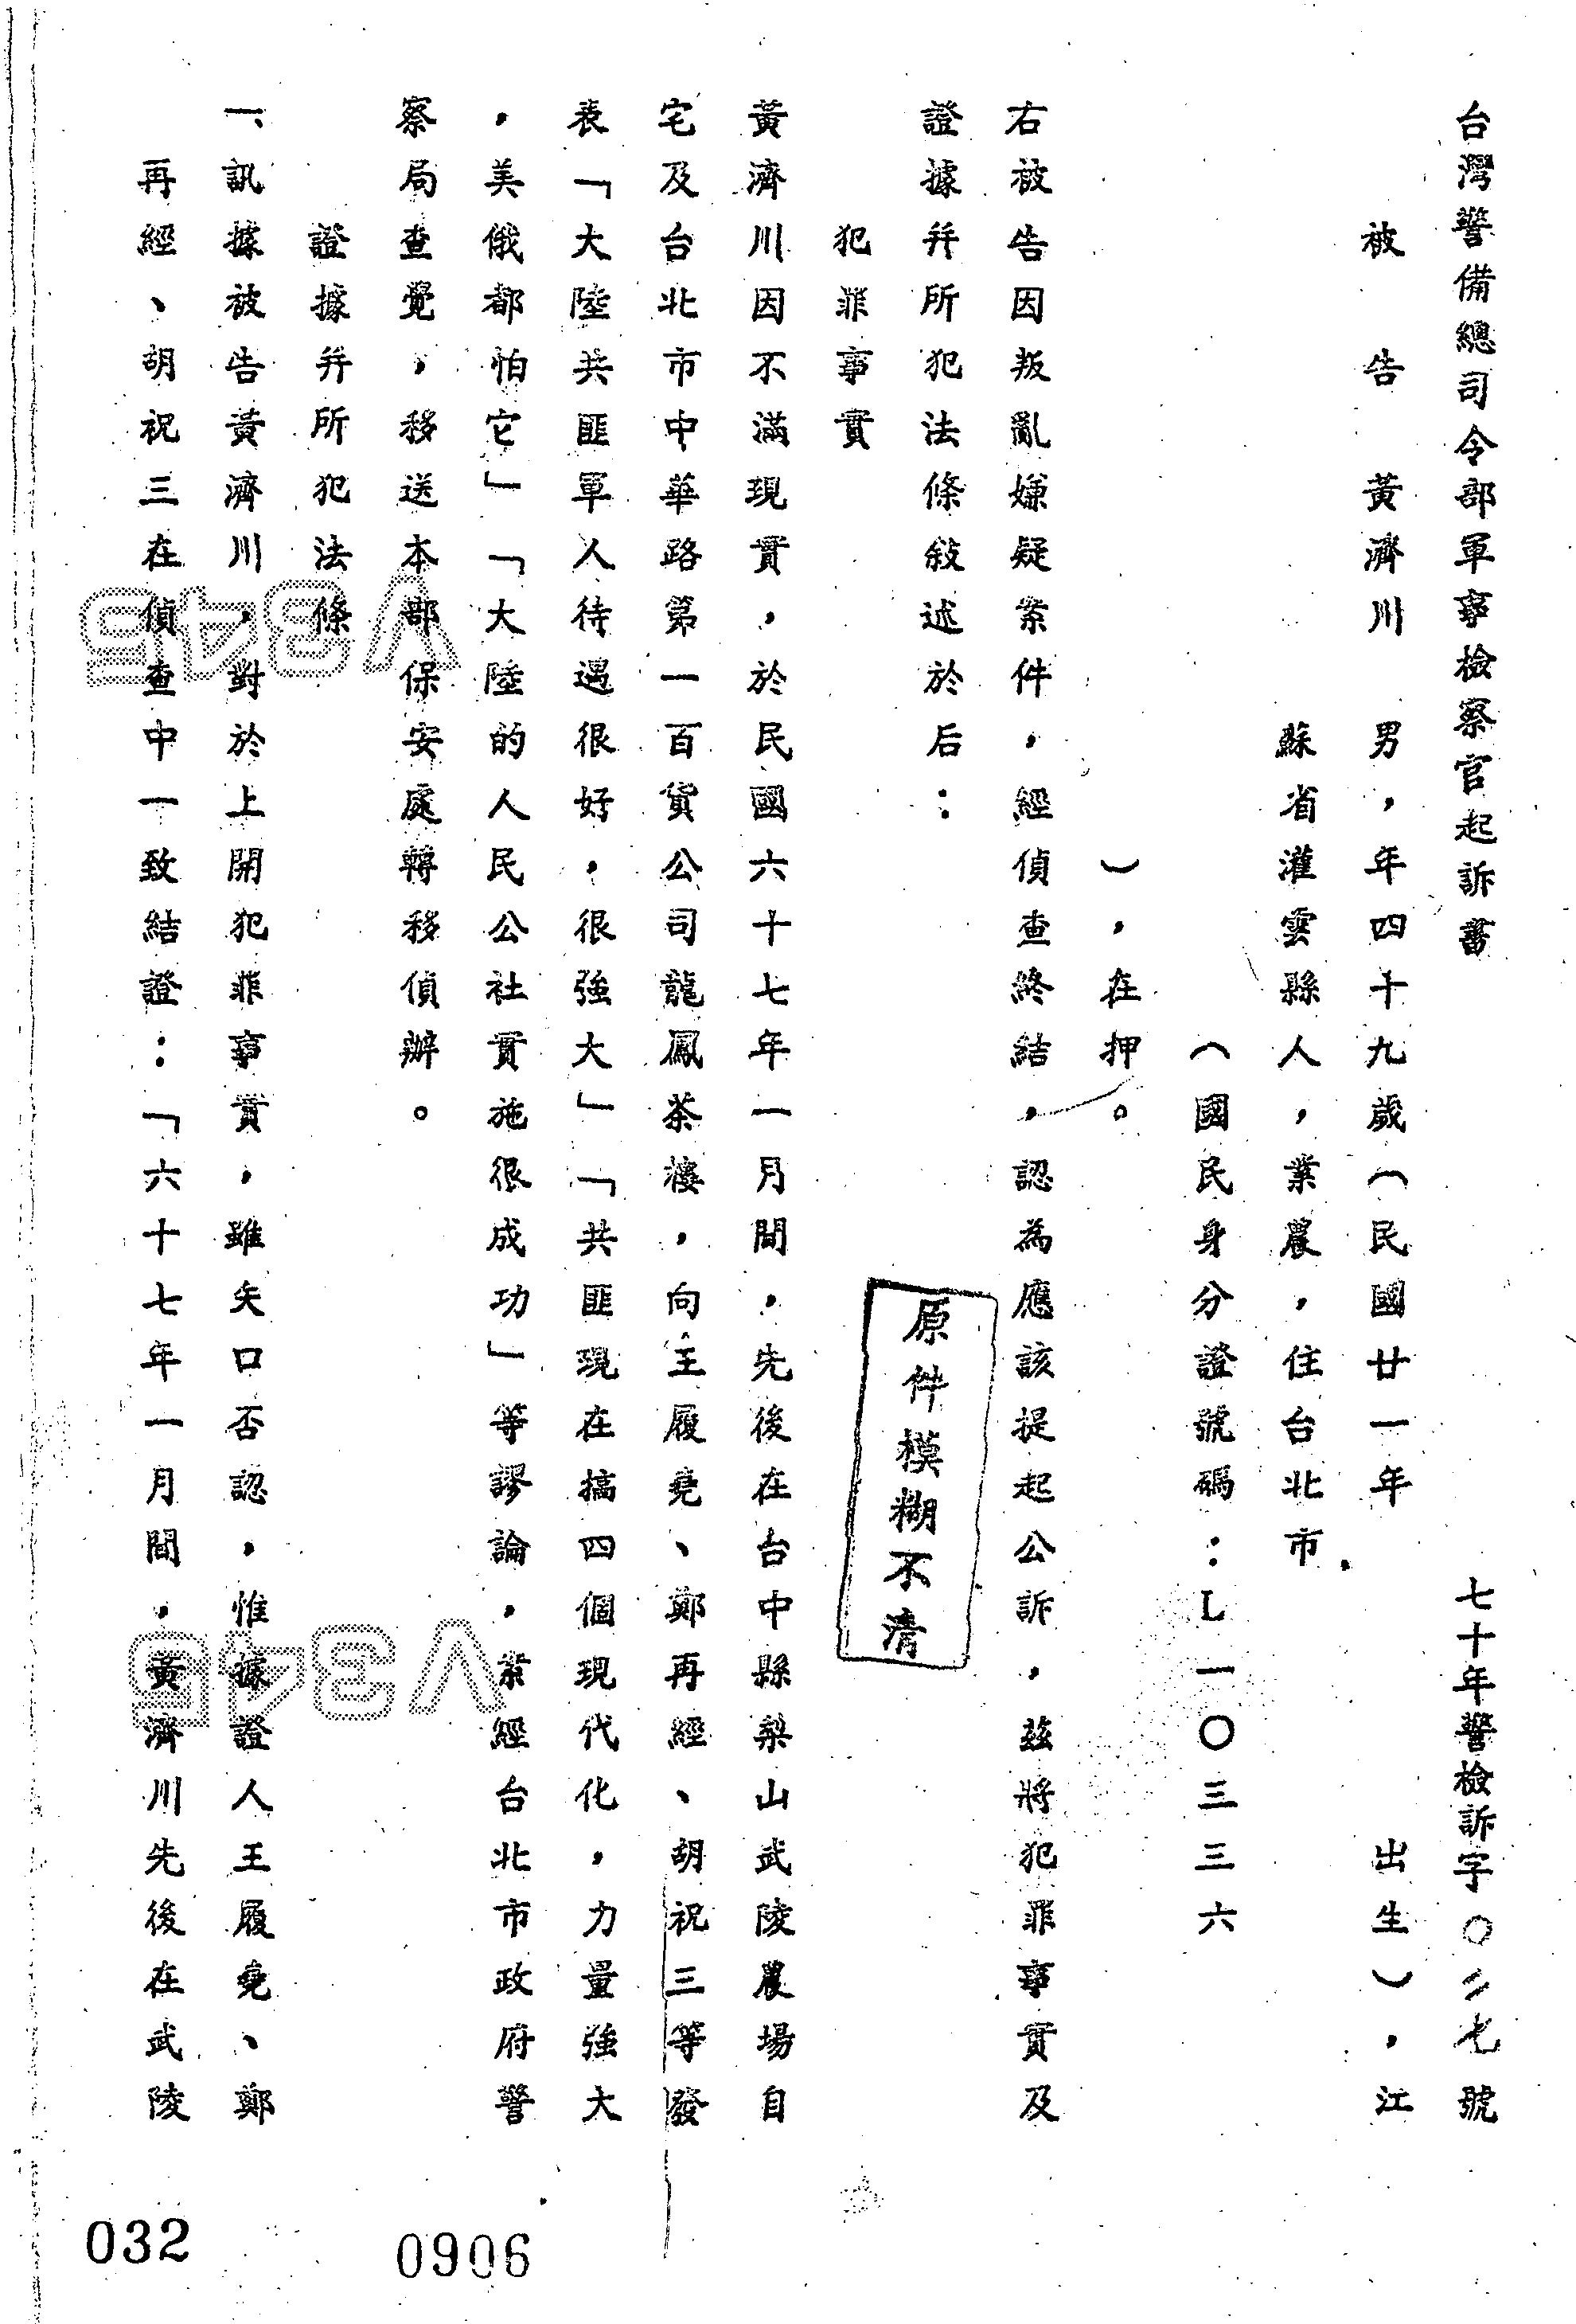 台灣警備總司令部軍事檢察官起訴書
七十年警檢訴字〇二七號
被告　黃濟川　男，年四十九歲（民國廿一年　出生），江
蘇省灌雲縣人，業農，住台北市
（國民身分證號碼：L一〇三三六
），在押。
右被告因叛亂嫌疑案件，經偵查終結，認為應該提起公訴，茲將犯罪事實及
證據幷所犯法條敍述於后：
犯罪事實
黃濟川因不滿現實，於民國六十七年一月間，先後在台中縣梨山武陵農場自
宅及台北市中華路第一百貨公司龍鳳茶樓，向王履堯、鄭再經、胡祝三等發
表「大陸共匪軍人待遇很好，很強大」「共匪現在搞四個現代化，力量強大
，美俄都怕它」「大陸的人民公社實施很成功」等謬論，案經台北市政府警
察局查覺，移送本部保安處轉移偵辦。
證據幷所犯法條
一、訊據被告黃濟川，對於上開犯罪事實，雖矢口否認，惟據證人王履堯、鄭
再經、胡祝三在偵查中一致結證：「六十七年一月間，黃濟川先後在武陵
原件模糊不清
V345
V345
032
0906